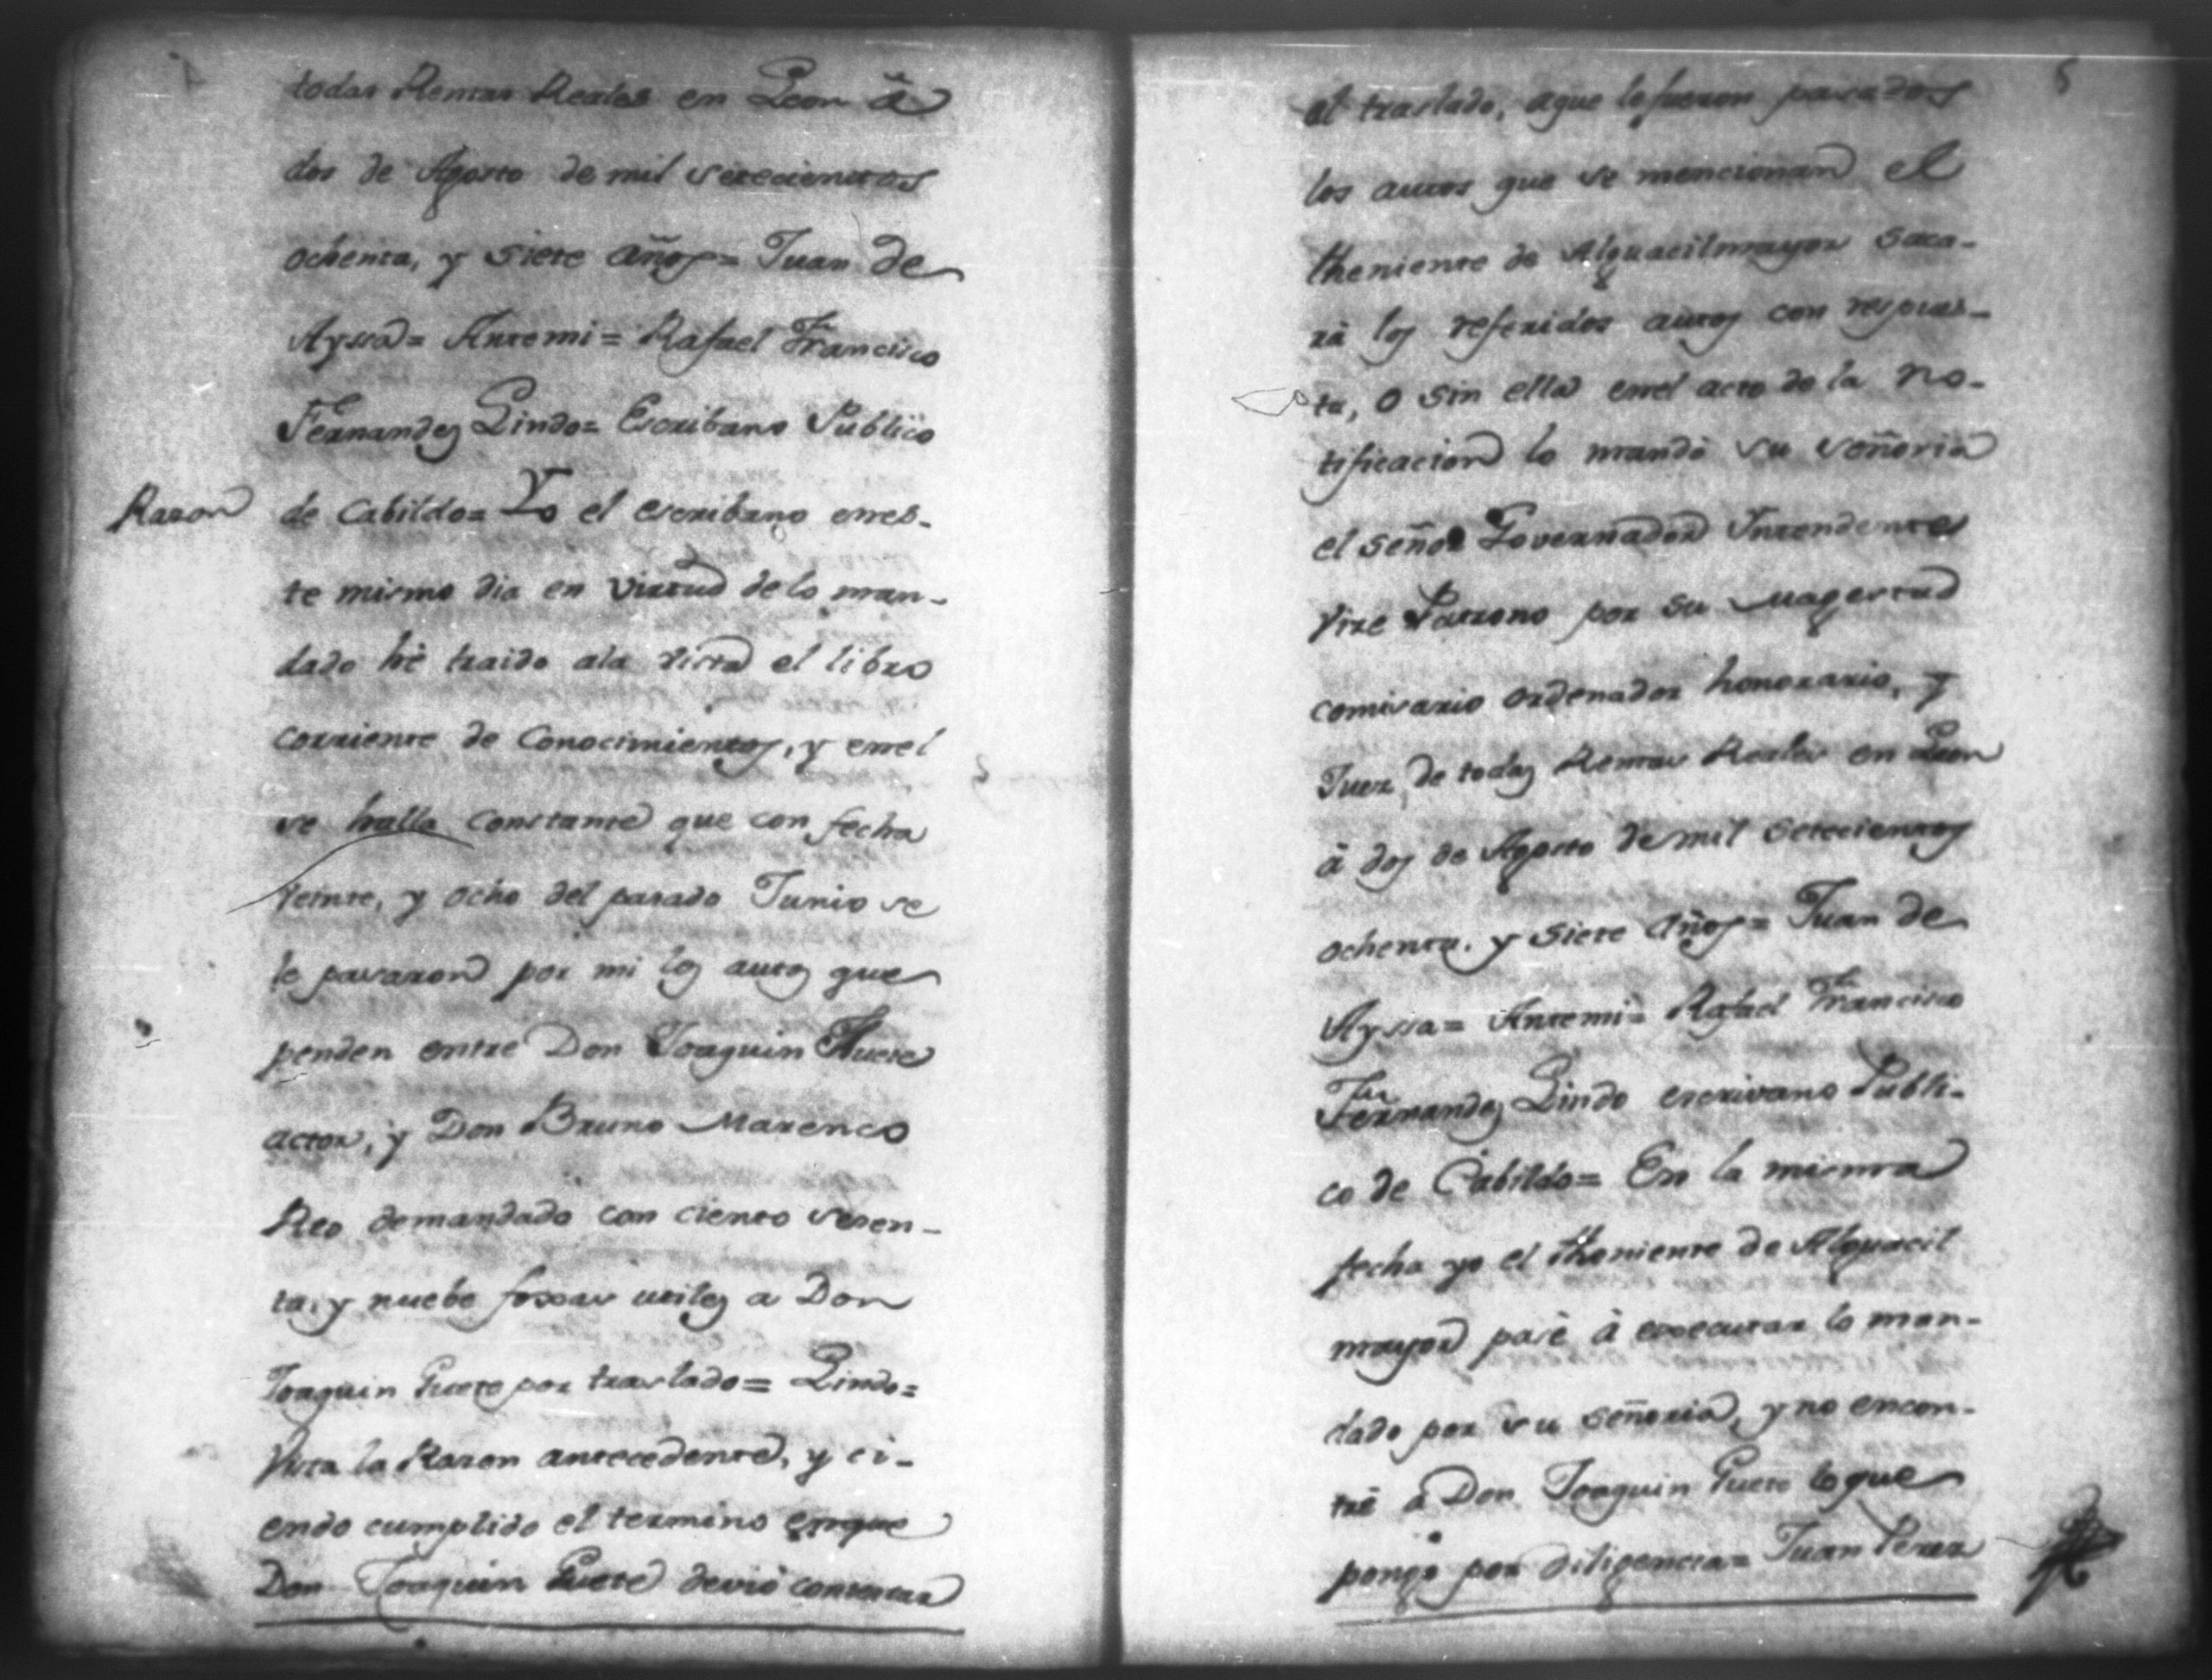 todas Rentas Reales en Leon â
dos de Agosto de mil setecientos
ochenta, y siete años= Juan de
Ayssa= Antemi= Rafael Francisco
Fernandez Lindo= Escribano Publico
Razon
de Cabildo= Yo el escribano enes-
te mismo dia en virtud de lo man-
dado hè traido ala vista el libro
corriente de Conocimientos, y enel
se halla constante que con fecha
veinte, y ocho del pasado Junio se
le pasaron por mi los autos que
penden entre Don Joaquin Huete
actor, y Don Bruno Marenco
Reo demandado con ciento sesen-
ta, y nuebe foxas utiles a Don
Joaquin Huete por traslado= Lindo=
Vista la Razon antecedente, y ci-
endo cumplido el termino enque
Don Joaquin Huete devió contestar
5
el traslado, aque le fueron pasados
los autos que se mencionan el
theniente de Alguacilmayor saca-
rà los referidos autos con respues-
ta, o sin ella enel acto de la no-
tificacion lo mandò su señoria
el señor Governador Intendente
Vice Patrono por su Magestad
comisario ordenador honorario, y
Juez de todas Rentas Reales en Leon
â dos de Agosto de mil setecientos
ochenta, y siete años= Juan de
Ayssa= Antemi= Rafael Francisco
Fernandez Lindo escrivano Publi-
co de Cabildo= En la misma
fecha yo el theniente de Alguacil
mayor pasè à executar lo man-
dado por su señoria, y no encon-
trè a Don Joaquin Huete loque
pongo por diligencia= Juan Perez